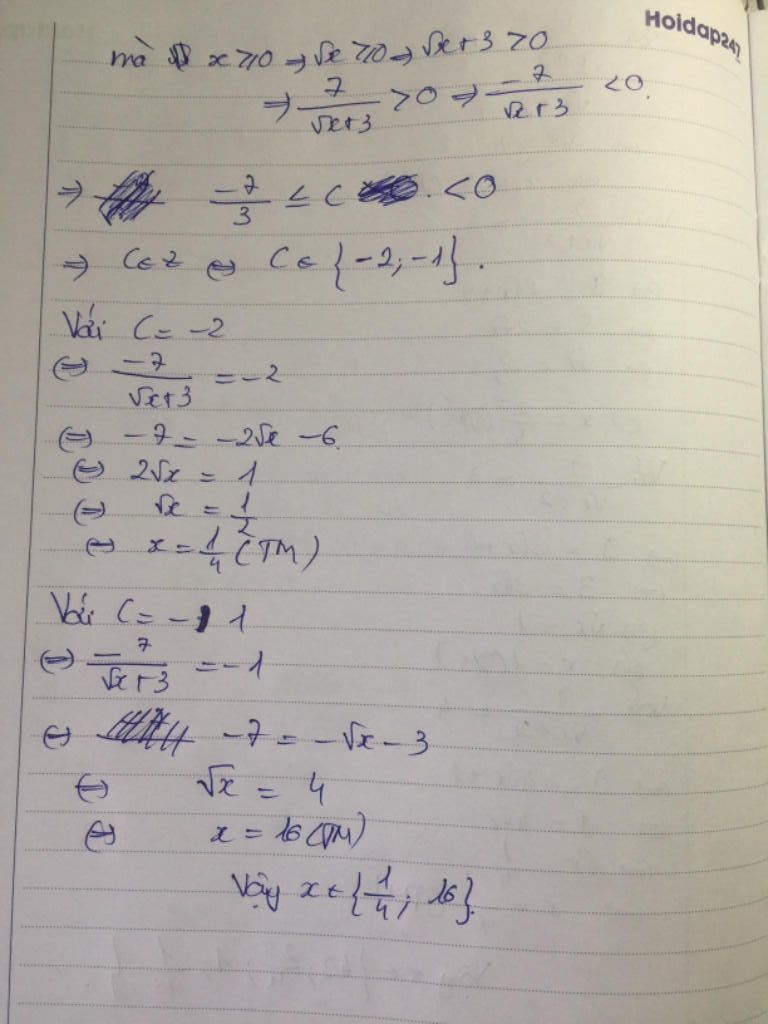 Hoidap247
mà x ≥ 0 ⇒ √x ≥ 0 ⇒ √x + 3 > 0
⇒ 7/(√x+3) > 0 ⇒ -7/(√x+3) < 0.
⇒ -7/3 ≤ C < 0
⇒ C ∈ Z ⇔ C ∈ {-2; -1}.
Với C = -2
⇔ -7/(√x+3) = -2
⇔ -7 = -2√x - 6
⇔ 2√x = 1
⇔ √x = 1/2
⇔ x = 1/4 (TM)
Với C = -1
⇔ -7/(√x+3) = -1
⇔ -7 = -√x - 3
⇔ √x = 4
⇔ x = 16 (TM)
Vậy x ∈ {1/4; 16}.